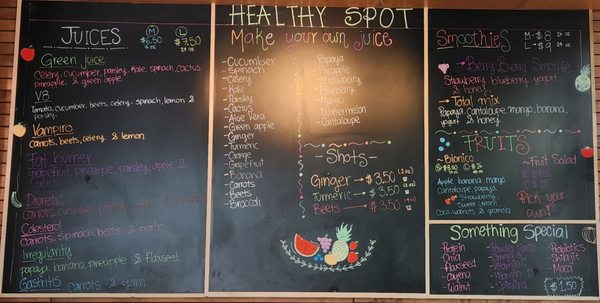 JUICES
M $6.50
L $7.50
Green juice
Celery, cucumber, parsley, kale, spinach, cactus
pineapple, & green apple
V8
Tomato, cucumber, beets, celery, spinach, lemon &
parsley
Vampiro
Carrots, beets, celery & lemon
Fat burner
grapefruit, pineapple, parsley, apple &
Diuretic
Carrots, cucumber,
Colesterol
Carrots, Spinach, beets & garlic
Irregularity
papaya, banana, pineapple & Flaxseed
Gastritis Carrots & yam
HEALTHY SPOT
Make your own juice
-Cucumber
-Spinach
-Celery
-Kale
-Parsley
-Cactus
-Aloe Vera
-Green apple
-Ginger
-Turmeric
-Orange
-Grapefruit
-Banana
-Carrots
-Beets
-Broccoli
Papaya
Pineapple
Strawberry
Blueberry
Mango
Watermelon
Cantaloupe
-Shots-
Ginger → $3.50 (2 oz)
Turmeric → $3.50
Beets → $3.50
Smoothies
M-$8
L-$9
Berry Berry Smoothie
Strawberry, blueberry, yogurt
& honey
→ Total mix
Papaya, Cantaloupe, mango, banana,
yogurt & honey
FRUITS
-Bionico
Apple banana mango
Cantaloupe, papaya,
Strawberry,
Sweet cream
Coco walnuts & granola
-Fruit Salad
Pick your
own!
Something Special
-Protein
-Chia
-Flaxseed
-Cayena
-Walnut
-Spirulina
-Probiotics
-Shilajit
-Maca
$1.50